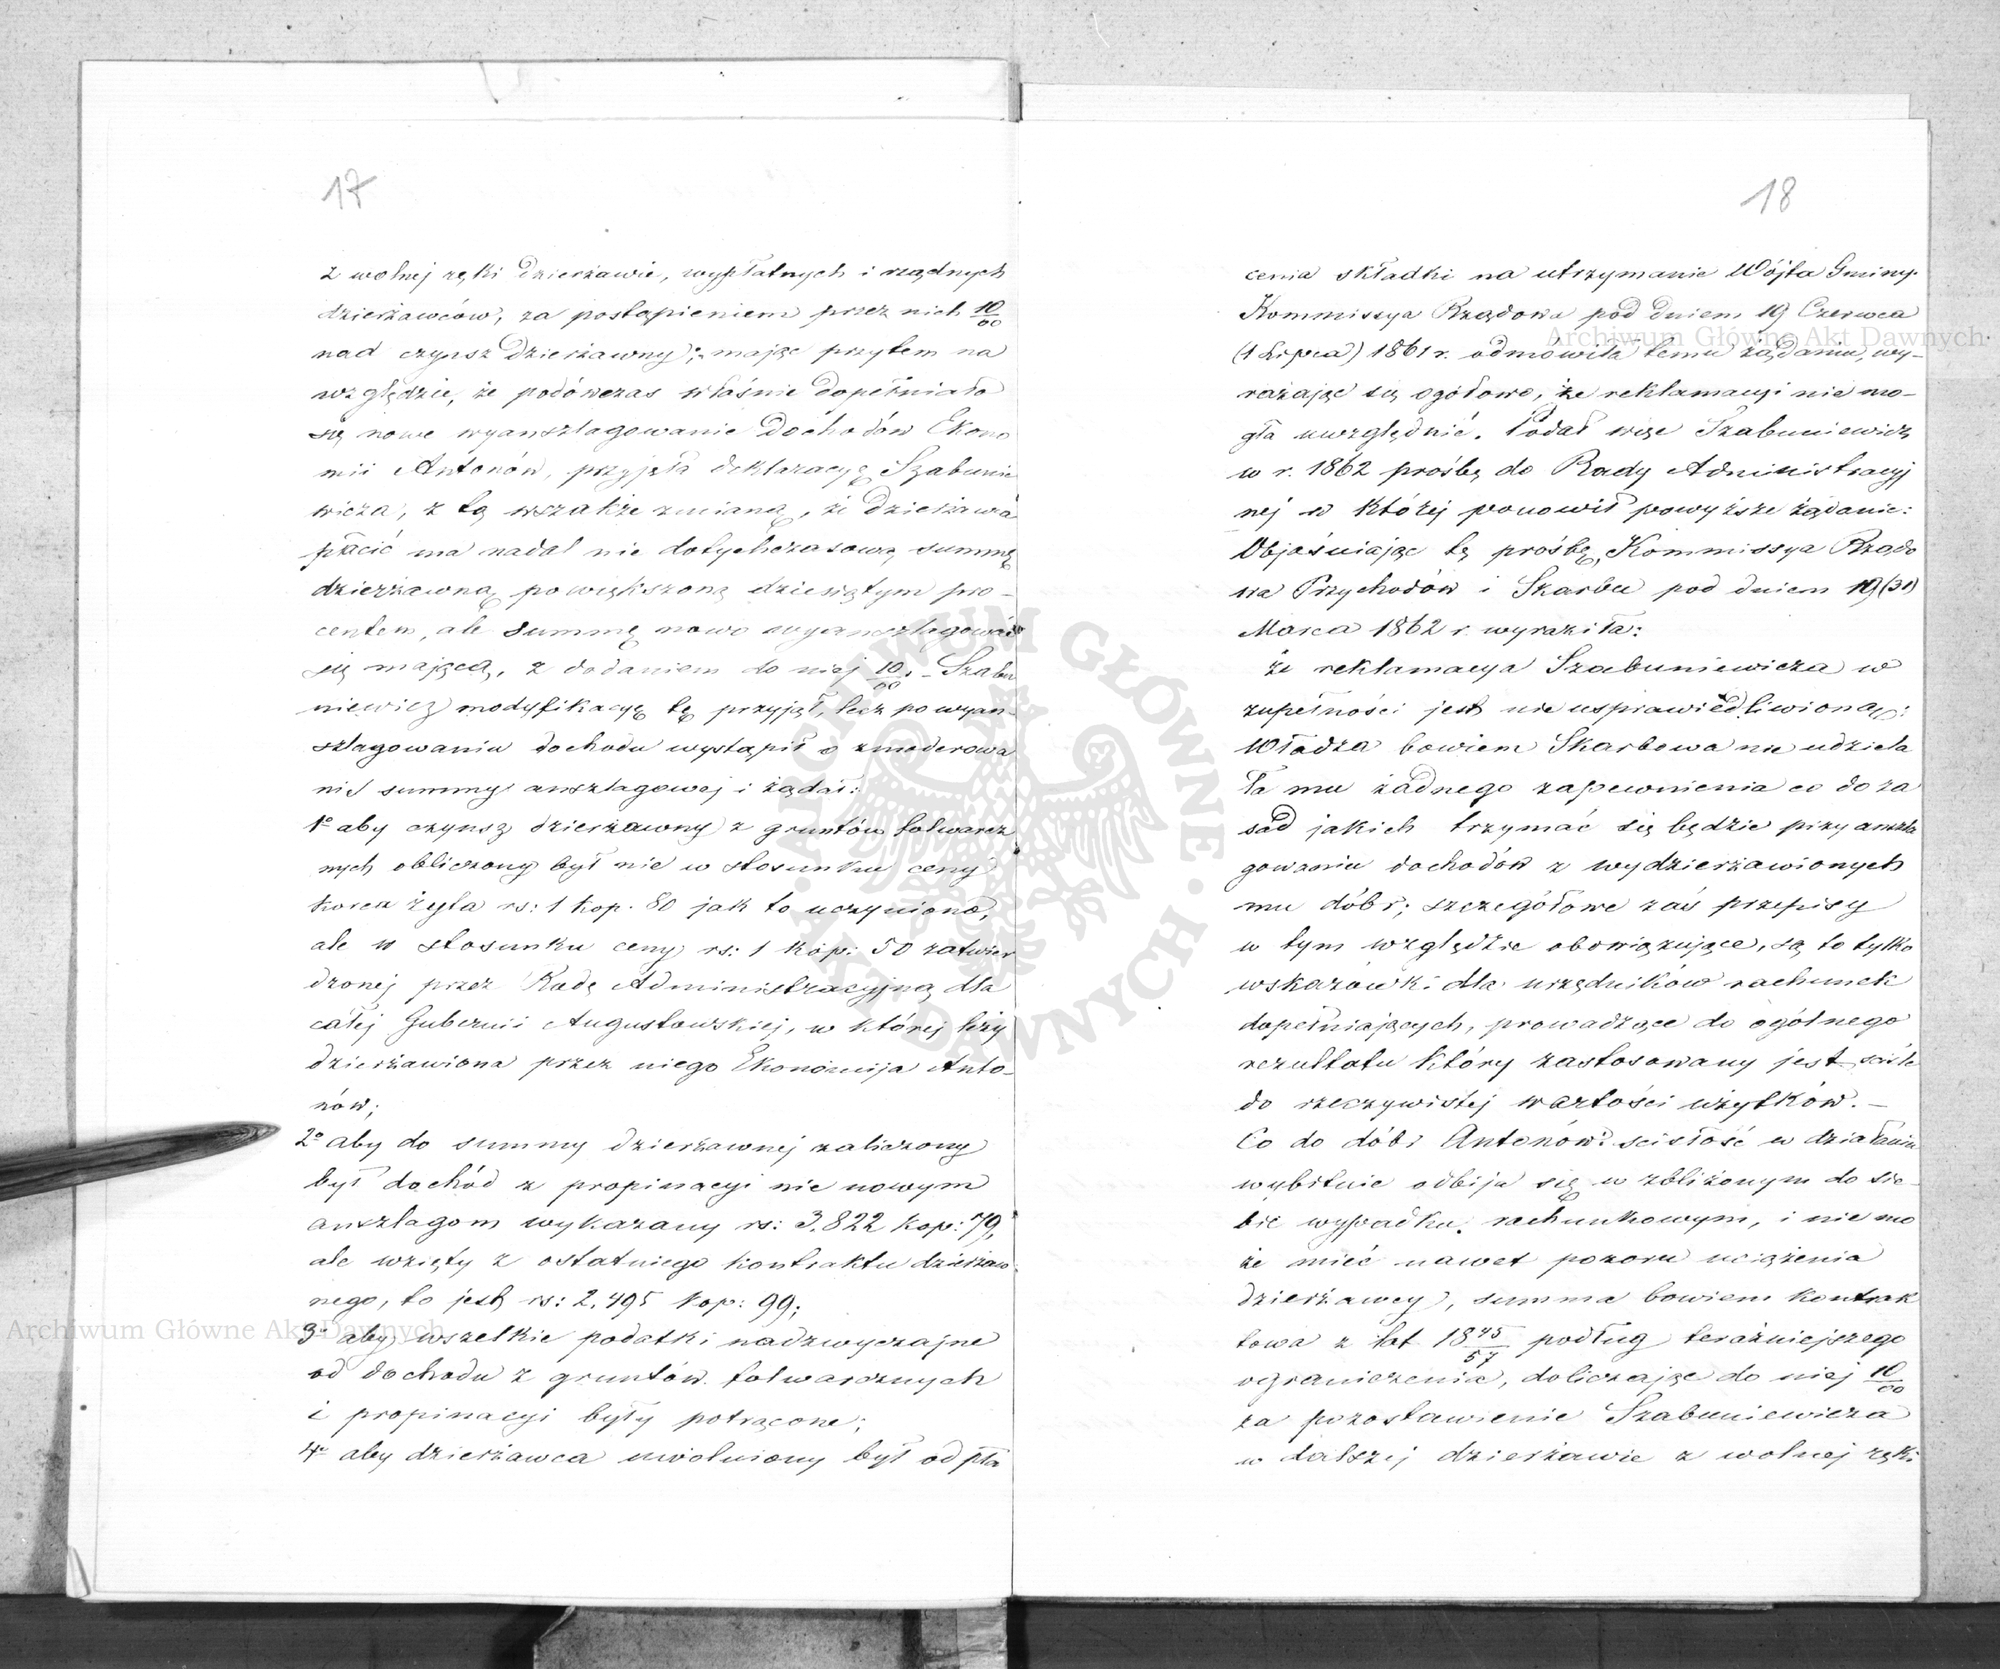 17
z wolnej ręki dzierżawie, wypłatnych i rządnych
dzierżawców, za postąpieniem przez nich 10/00
nad czynsz dzierżawny; mając przytem na
względzie, że podówczas właśnie dopełniało
się nowe wyanszlagowanie dochodów Ekono
mii Antonów, przyjęła deklaracyę Szabunie
wicza, z tą wszakże zmianą, że dzierżawca
płacić ma nadal nie dotychczasową summę
dzierżawną powiększoną dziesiątym pro-
centem, ale summę nowo wyanszlagować
się mającą, z dodaniem do niej 10/00. – Szabu
niewicz modyfikacyę tę przyjął, lecz po wyan-
szlagowaniu dochodu wystąpił o zmoderowa
nie summy anszlagowej i żądał:
1o aby czynsz dzierżawny z gruntów folwarcz
nych obliczony był nie w stosunku ceny
korca żyta rs: 1 kop. 80 jak to uczyniono,
ale w stosunku ceny rs: 1 kop: 50 zatwier
dzonej przez Radę Administracyjną dla
całej Gubernii Augustowskiej, w której leży
dzierżawiona przez niego Ekonomija Anto-
nów;
2o aby do summy dzierżawnej zaliczony
był dochód z propinacyi nie nowym
anszlagom wykazany rs: 3,822 kop: 79,
ale wzięty z ostatniego kontraktu dzierżaw-
nego, to jest rs: 2,495 kop: 99;
3o aby wszelkie podatki nadzwyczajne
od dochodu z gruntów folwarcznych
i propinacyi były potrącone;
4o aby dzierżawca uwolniony był od pła
18
cenia składki na utrzymanie Wójta Gminy.
Kommissya Rządowa pod dniem 19 Czerwca
(1 Lipca) 1861 r. odmówiła temu żądaniu, wy-
rażając się ogółowo, że reklamacyi nie mo-
gła uwzględnić. Podał więc Szabuniewicz
w r. 1862 prośbę do Rady Administracyj
nej w której ponowił powyższe żądanie:
Objaśniając tę prośbę, Kommissya Rządo
wa Przychodów i Skarbu pod dniem 19 (31)
Marca 1862 r. wyraziła:
że reklamacya Szabuniewicza w
zupełności jest nieusprawiedliwioną;
Władza bowiem Skarbowa nie udziela
ła mu żadnego zapewnienia co do za
sad jakich trzymać się będzie przy anszla
gowaniu dochodów z wydzierżawionych
mu dóbr; szczegółowe zaś przepisy
w tym względzie obowiązujące, są to tylko
wskazówki dla urzędników rachunek
dopełniających, prowadzące do ogólnego
rezultatu który zastosowany jest ściśle
do rzeczywistej wartości użytków. –
Co do dóbr Antonów scisłość w działaniu
wybitnie odbija się w zbliżonym do sie-
bie wypadku rachunkowym, i nie mo
że mieć nawet pozoru uciążenia
dzierżawcy, summa bowiem kontrak
towa z lat 1845/57 podług teraźniejszego
ograniczenia, doliczając do niej 10/00
za pozostawienie Szabuniewicza
w dalszej dzierżawie z wolnej ręki
Archiwum Główne Akt Dawnych
Archiwum Główne Akt Dawnych
ARCHIWUM GŁÓWNE AKT DAWNYCH